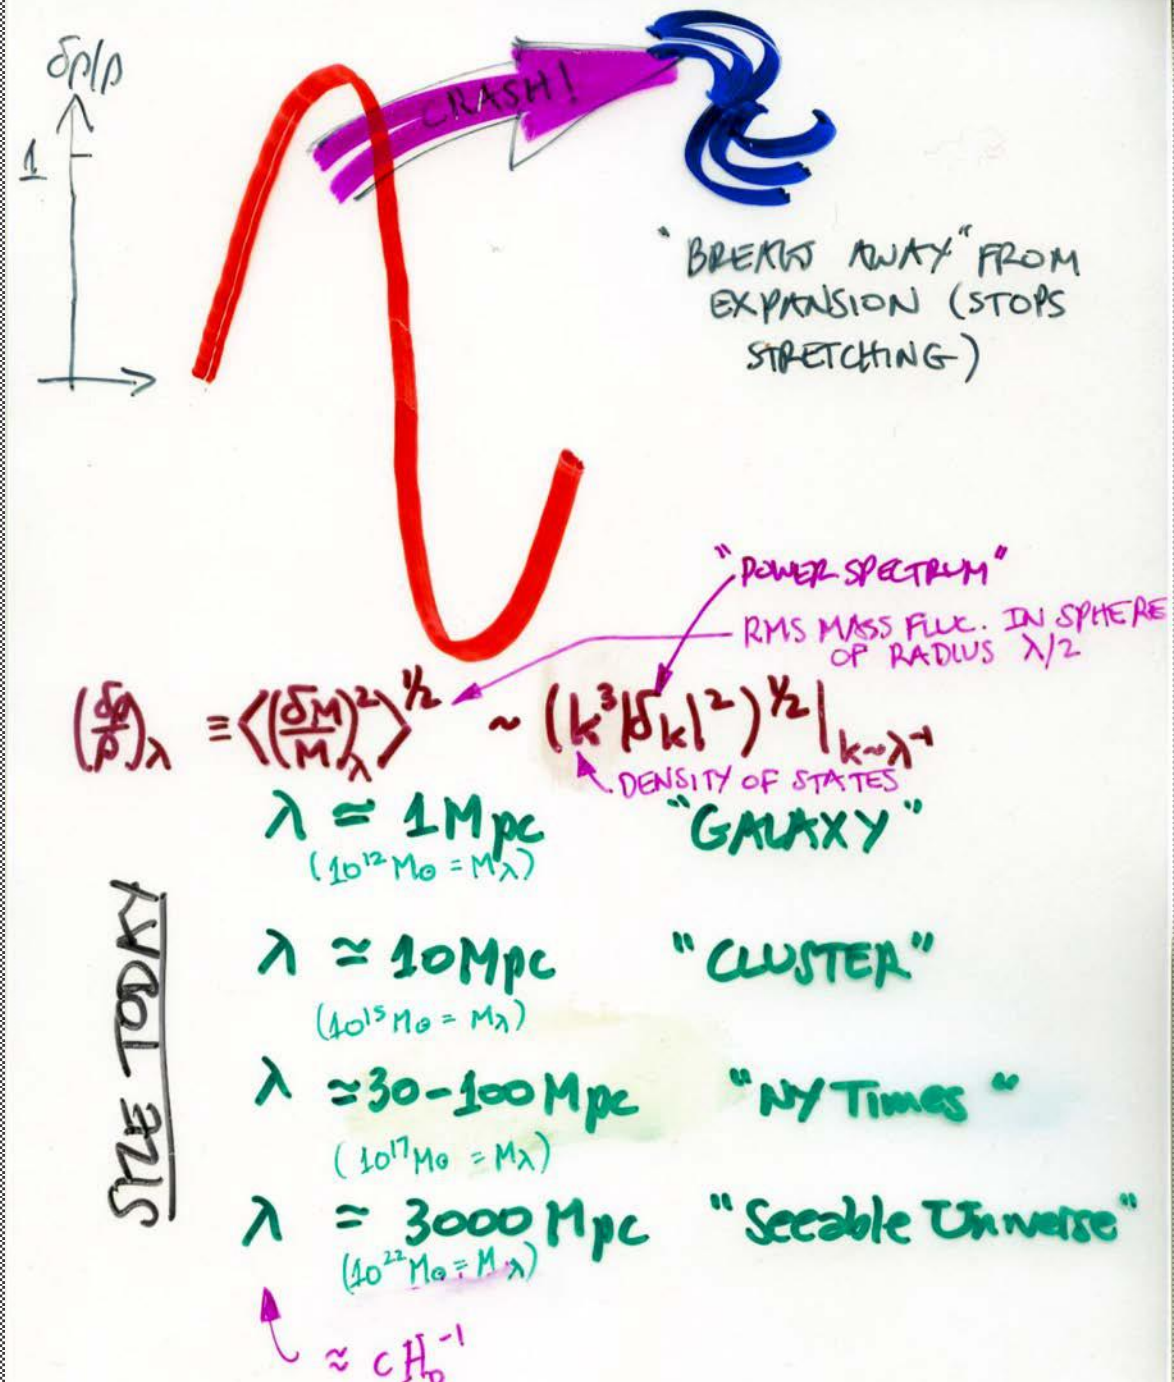 δρ/ρ
1
CRASH!
"BREAKS AWAY" FROM
EXPANSION (STOPS
STRETCHING)
"POWER SPECTRUM"
RMS MASS FLUC. IN SPHERE
OF RADIUS λ/2
(δρ/ρ)_λ ≡ ⟨(δM/M)²_λ⟩^{1/2} ~ (k³|δ_k|²)^{1/2}|_{k~λ⁻¹}
DENSITY OF STATES
λ ≃ 1Mpc "GALAXY"
(10¹² M⊙ = M_λ)
SIZE TODAY
λ ≃ 10Mpc "CLUSTER"
(10¹⁵ M⊙ = M_λ)
λ ≃ 30-100 Mpc "NY Times"
(10¹⁷ M⊙ = M_λ)
λ ≃ 3000 Mpc "Seeable Universe"
(10²² M⊙ = M_λ)
≈ cH₀⁻¹